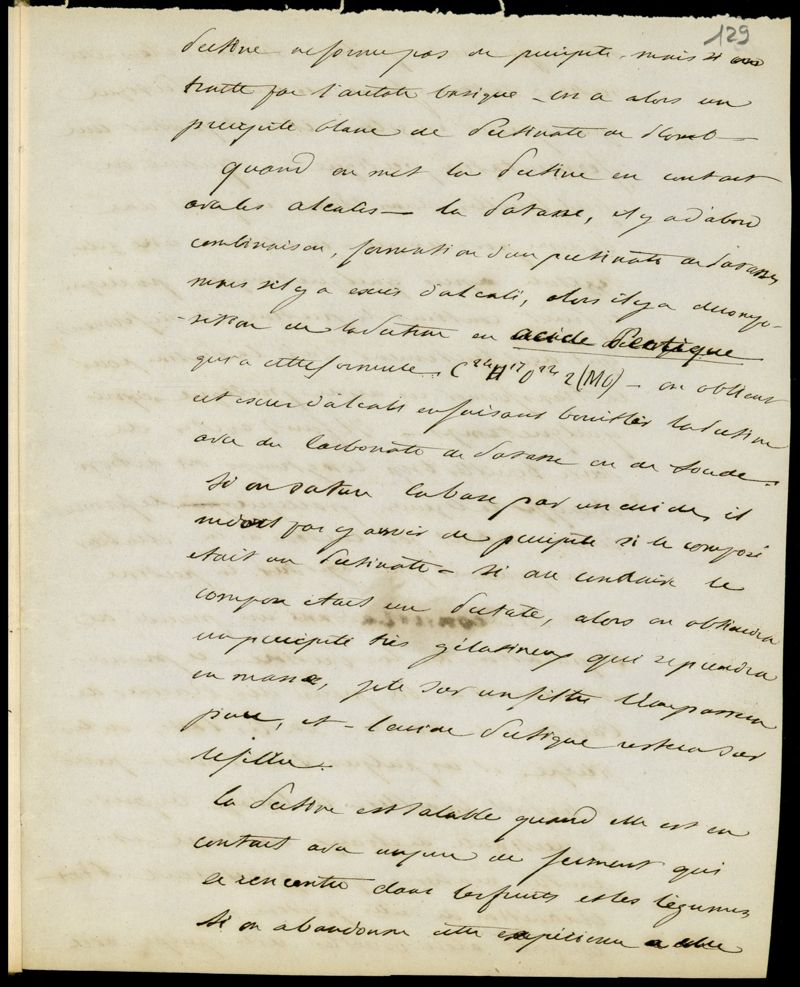 129
Pectine ne forme pas de precipité, mais si on
traite par l'acetate basique - on a alors un
precipité blanc de Pectinate de Plomb -
quand on met la Pectine en contact
avec les alcalis - la Potasse, il y a d'abord
combinaison, formation d'un pectinate de Potasse,
mais s'il y a excès d'alcali, alors il y a decompo-
-sition de la Pectine en acide Pectique
qui a cette formule. C²⁴H¹⁷O²² 2(MO) - on obtient
cet excès d'alcali en faisant bouillir la Pectine
avec du Carbonate de Potasse ou de Soude.
Si on sature la base par un acide, il
ne doit pas y avoir de precipité si le composé
était un Pectinate - si au contraire le
composé était un Pectate, alors on obtiendra
un precipité très gélatineux qui se prendra
en masse, jeté sur un filtre l'eau passera
pure, et - l'acide Pectique restera sur
le filtre.
la Pectine est alterable quand elle est en
contact avec un peu de ferment qui
se rencontre dans les fruits et les légumes
Si on abandonne cette expérience a elle